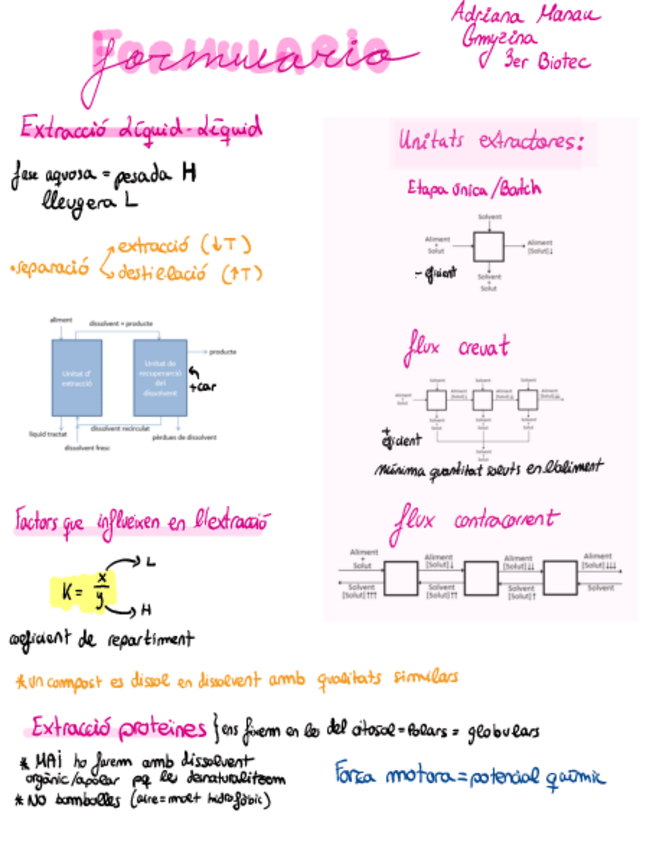 Formulario
Adriana Manau
Gmyzina
3er Biotec
Extracció Líquid-Líquid
fase aquosa = pesada H
lleugera L
• separació
extracció (↓T)
destil·lació (↑T)
aliment
dissolvent + producte
Unitat d'
extracció
Unitat de
recuperació
del
dissolvent
producte
+car
dissolvent recirculat
líquid tractat
pèrdues de dissolvent
dissolvent fresc
Unitats extractores:
Etapa única/Batch
Solvent
Aliment
+
Solut
Aliment
[Solut]↓
- eficient
Solvent
+
Solut
flux creuat
Solvent Solvent Solvent
Aliment
+
Solut
Aliment
[Solut]↓
Aliment
[Solut]↓↓
Aliment
[Solut]↓↓↓
Solvent
+
Solut
Solvent
+
Solut
Solvent
+
Solut
+
eficient
Solvent
+
Solut
mínima quantitat soluts en l'aliment
flux contracorrent
Aliment
+
Solut
Aliment
[Solut]↓
Aliment
[Solut]↓↓
Aliment
[Solut]↓↓↓
Solvent
[Solut]↑↑↑
Solvent
[Solut]↑↑
Solvent
[Solut]↑
Solvent
Factors que influeixen en l'extracció
K = x/y
L
H
coeficient de repartiment
* un compost es dissol en dissolvent amb qualitats similars
Extracció proteines } ens fixem en les del citosol = Polars = globulars
* MAI ho farem amb dissolvent
orgànic/apolar pq les desnaturalitzem
* NO bombolles (aire = molt hidrofòbic)
Força motora = potencial químic